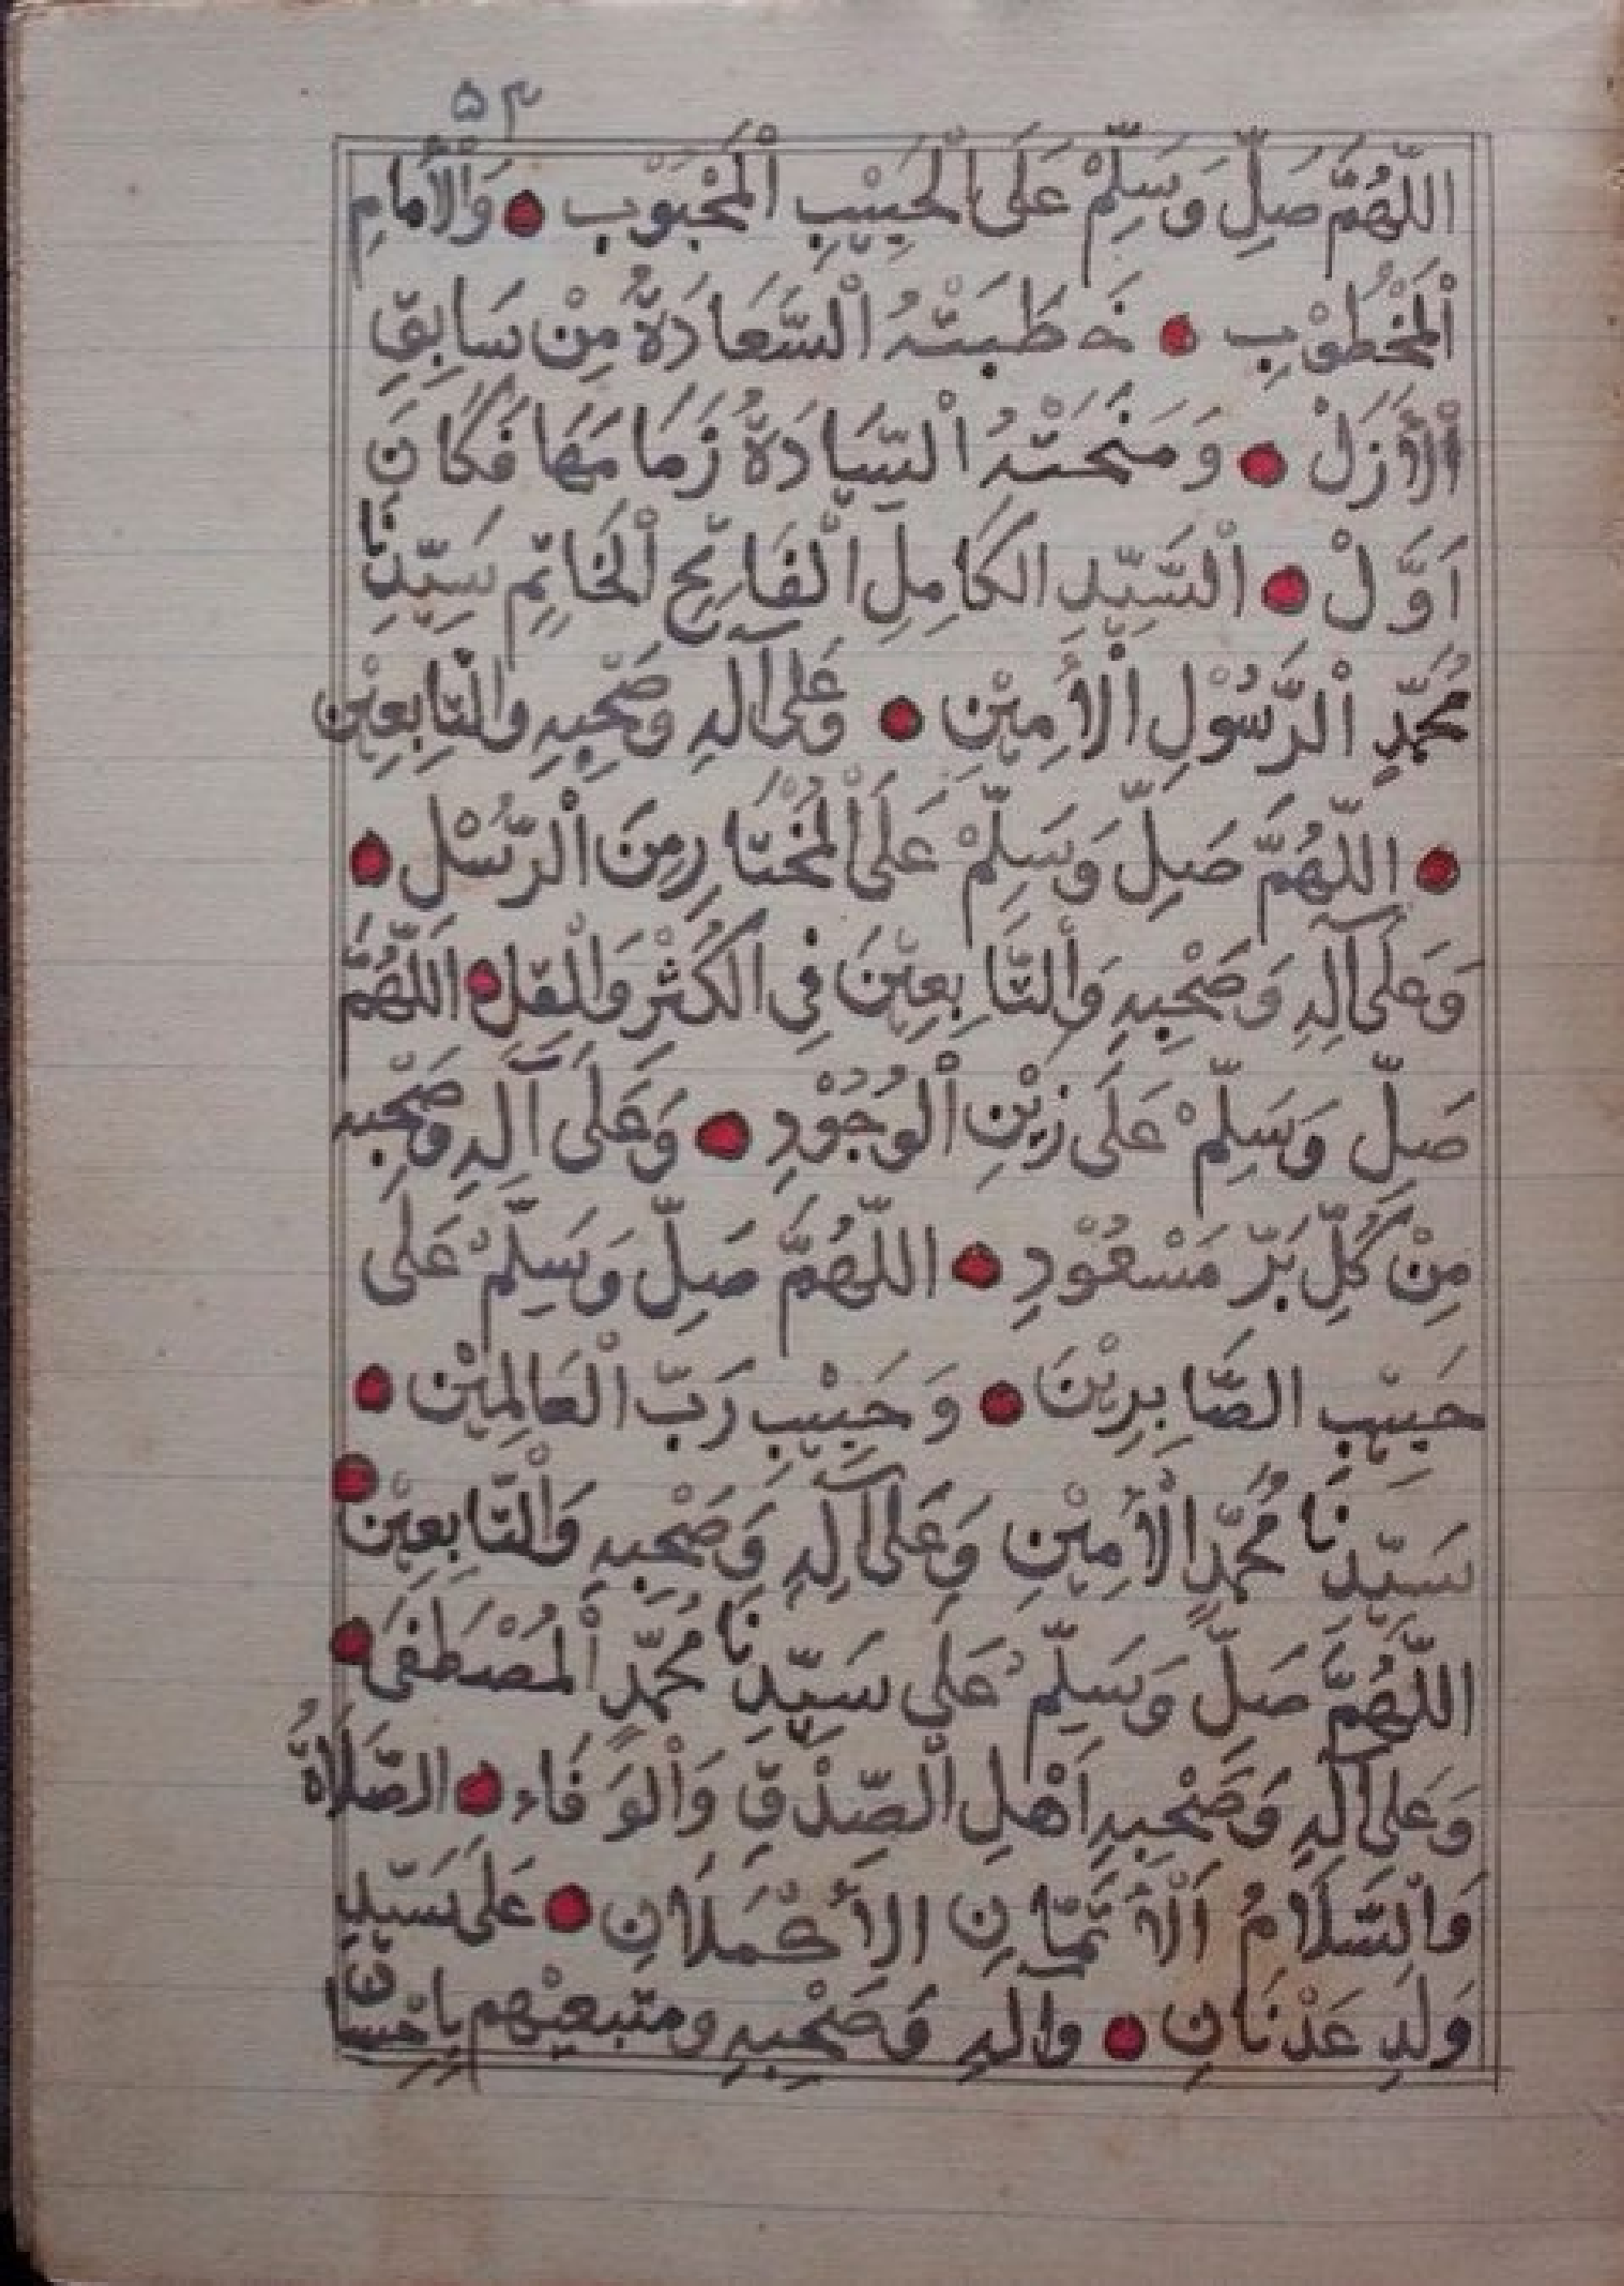 ٥٣
اللّٰهُمَّ صَلِّ وَسَلِّمْ عَلَى الْحَبِيْبِ الْمَحْبُوْبِ • وَالْاِمَامِ
الْمَخْطُوْبِ • خَطَبَتْهُ السَّعَادَةُ مِنْ سَابِقِ
الْاَزَلْ • وَمَنَحَتْهُ السِّيَادَةُ زِمَامَهَا فَكَانَ
اَوَّلْ • السَّيِّدِ الكَامِلِ الْفَاتِحِ الْخَاتِمِ سَيِّدِنَا
مُحَمَّدٍ الرَّسُوْلِ الْاَمِيْنِ • وَعَلَى آلِهِ وَصَحْبِهِ وَالتَّابِعِيْنَ
• اللّٰهُمَّ صَلِّ وَسَلِّمْ عَلَى الْمُخْتَارِ مِنَ الرُّسْلِ •
وَعَلَى آلِهِ وَصَحْبِهِ وَالتَّابِعِيْنَ فِى الكُثْرِ وَالْقِلِ • اللّٰهُمَّ
صَلِّ وَسَلِّمْ عَلَى زَيْنِ الْوُجُوْدِ • وَعَلَى آلِهِ وَصَحْبِهِ
مِنْ كُلِّ بَرٍّ مَسْعُوْدِ • اللّٰهُمَّ صَلِّ وَسَلِّمْ عَلَى
حَبِيْبِ الصَّابِرِيْنَ • وَحَبِيْبِ رَبِّ الْعَالَمِيْنَ •
سَيِّدِنَا مُحَمَّدٍ الْاَمِيْنِ وَعَلَى آلِهِ وَصَحْبِهِ وَالتَّابِعِيْنَ •
اللّٰهُمَّ صَلِّ وَسَلِّمْ عَلَى سَيِّدِنَا مُحَمَّدٍ الْمُصْطَفَى •
وَعَلَى آلِهِ وَصَحْبِهِ اَهْلِ الصِّدْقِ وَالْوَفَاءِ • الصَّلَاةُ
وَالسَّلَامُ الْاَتَمَّانِ الاَكْمَلَانِ • عَلَى سَيِّدِ
وَلَدِ عَدْنَانِ • وَآلِهِ وَصَحْبِهِ وَمتبعيْهم بِاِحْسَانْ